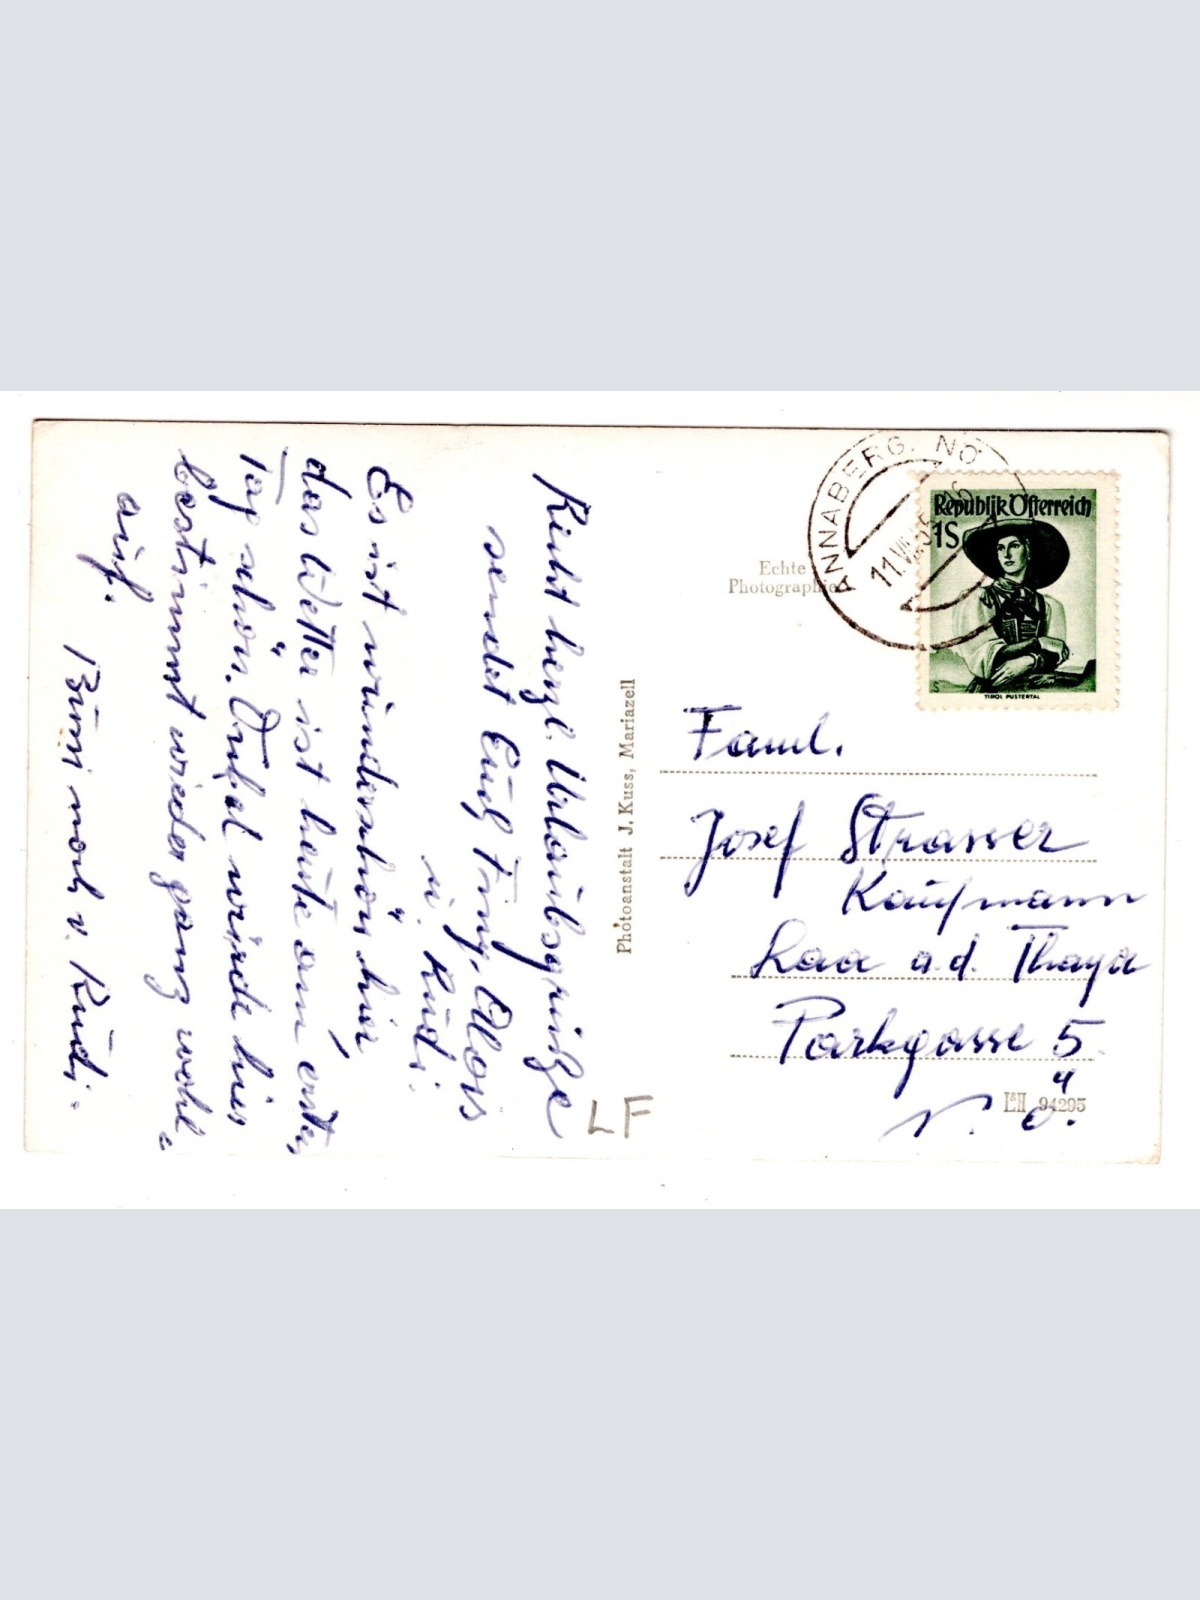 Recht herzl. Urlaubsgrüße
sendet Euch Alois
u. Rudi.
Es ist wunderschön hier
das Wetter ist heute am ersten
Tag schön. Onkel wird hier
bestimmt wieder ganz wohl
auf.
Bussi noch v. Rudi.
Photoanstalt J. Kuss, Mariazell
LF
ANNABERG, NÖ
Echte
Photographie
Republik Österreich
1S
S
TIROL PUSTERTAL
Faml.
Josef Strasser
Kaufmann
Laa a.d. Thaya
Parkgasse 5
N.Ö.
L&H 94295